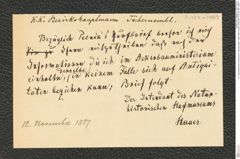 K. k. Bezirkshauptmann Tschernembl.
Bezüglich Pečnik's Zuschrift beehre ich mich
Ihnen mitzutheilen daß nach den
Informationen die ich im Ackerbauministerium
einholte, derselbe in keinem Falle sich auf Antiqui-
täten beziehen kann,
Brief folgt.
Der Intendant des Natur-
historischen Hofmuseums
Hauer
12. November 1887